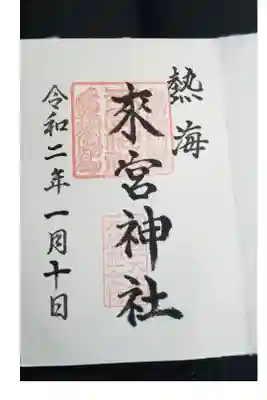 熱海
來宮神社
令和二年一月十日